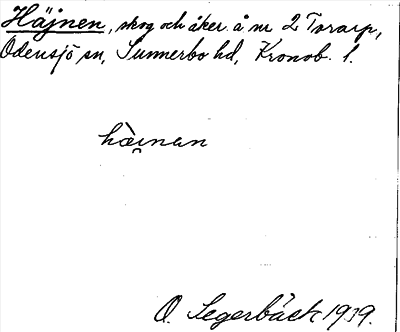 Häjnen, skog och åker å nr 2 Torarp,
Odensjö sn, Sunnerbo hd, Kronob. l.
hàınan
O. Segerbäck 1939.